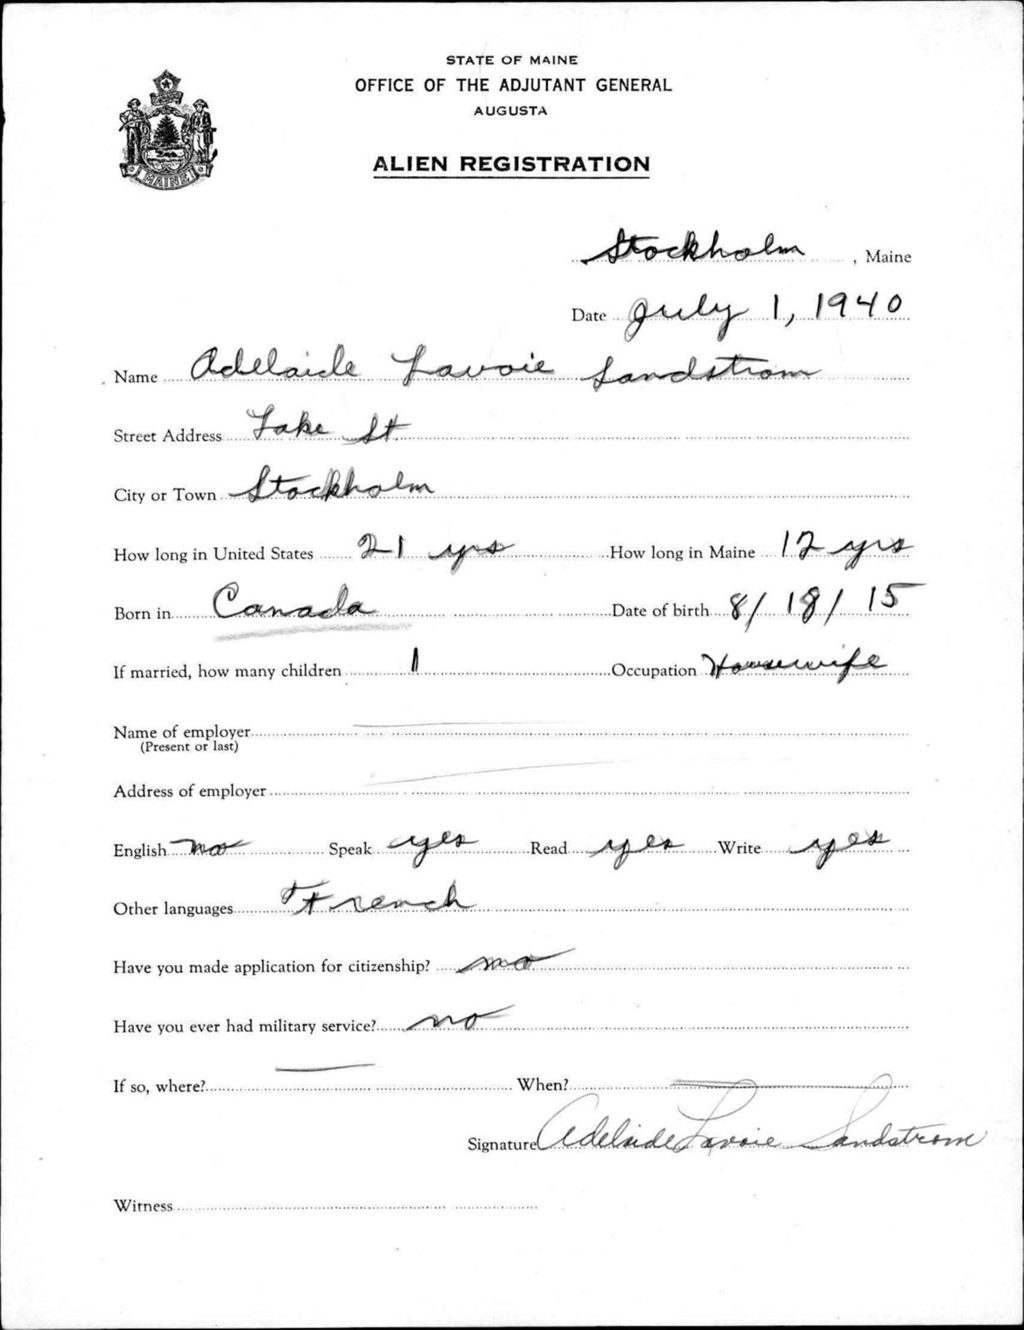 STATE OF MAINE
OFFICE OF THE ADJUTANT GENERAL
AUGUSTA
ALIEN REGISTRATION
MAINE
Stockholm, Maine
Date July 1, 1940
Name Adelaide Lavoie Sandstrom
Street Address Lake St.
City or Town Stockholm
How long in United States 21 yrs How long in Maine 12 yrs
Born in Canada Date of birth 8/18/15
If married, how many children 1 Occupation Housewife
Name of employer
(Present or last)
Address of employer
English no Speak yes Read yes Write yes
Other languages French
Have you made application for citizenship? no
Have you ever had military service? no
If so, where? When?
Signature Adelaide Lavoie Sandstrom
Witness